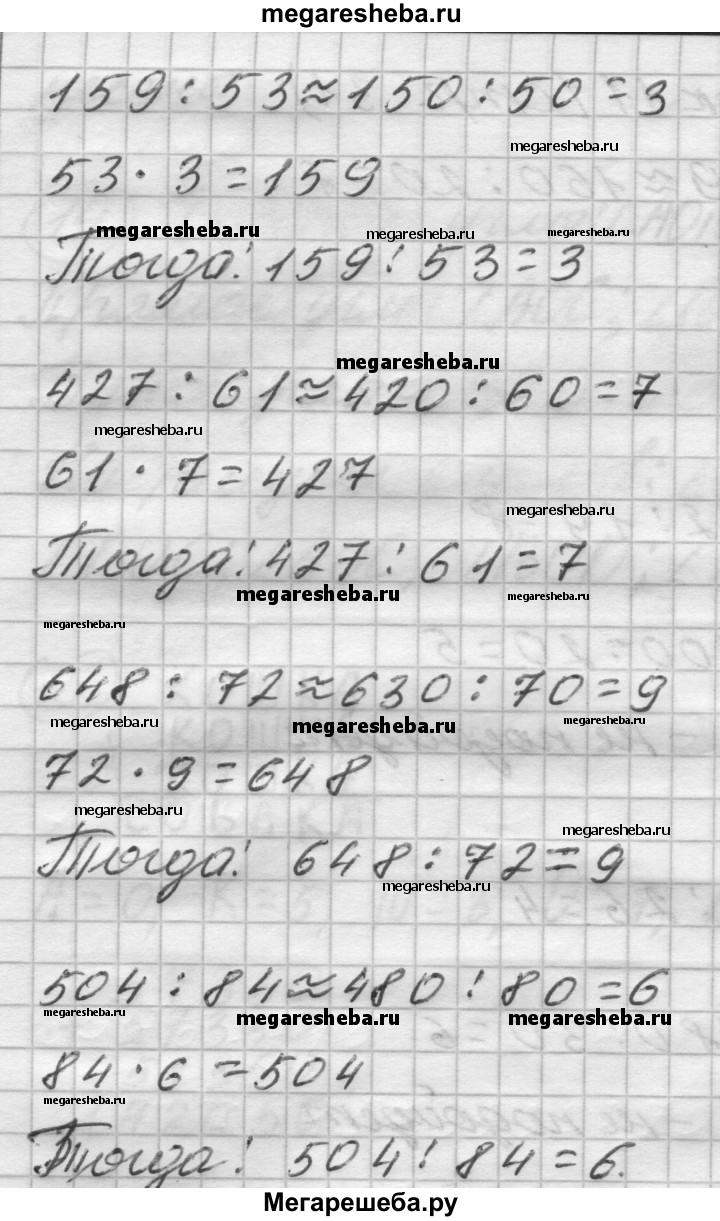 megaresheba.ru
159 : 53 ≈ 150 : 50 = 3
megaresheba.ru
53 · 3 = 159
megaresheba.ru megaresheba.ru megaresheba.ru
Тогда: 159 : 53 = 3
megaresheba.ru
427 : 61 ≈ 420 : 60 = 7
megaresheba.ru
61 · 7 = 427
megaresheba.ru
Тогда: 427 : 61 = 7
megaresheba.ru megaresheba.ru
megaresheba.ru
648 : 72 ≈ 630 : 70 = 9
megaresheba.ru megaresheba.ru megaresheba.ru
72 · 9 = 648
megaresheba.ru
megaresheba.ru
Тогда: 648 : 72 = 9
megaresheba.ru
504 : 84 ≈ 480 : 80 = 6
megaresheba.ru megaresheba.ru megaresheba.ru
84 · 6 = 504
megaresheba.ru
Тогда: 504 : 84 = 6.
Мегарешеба.ру